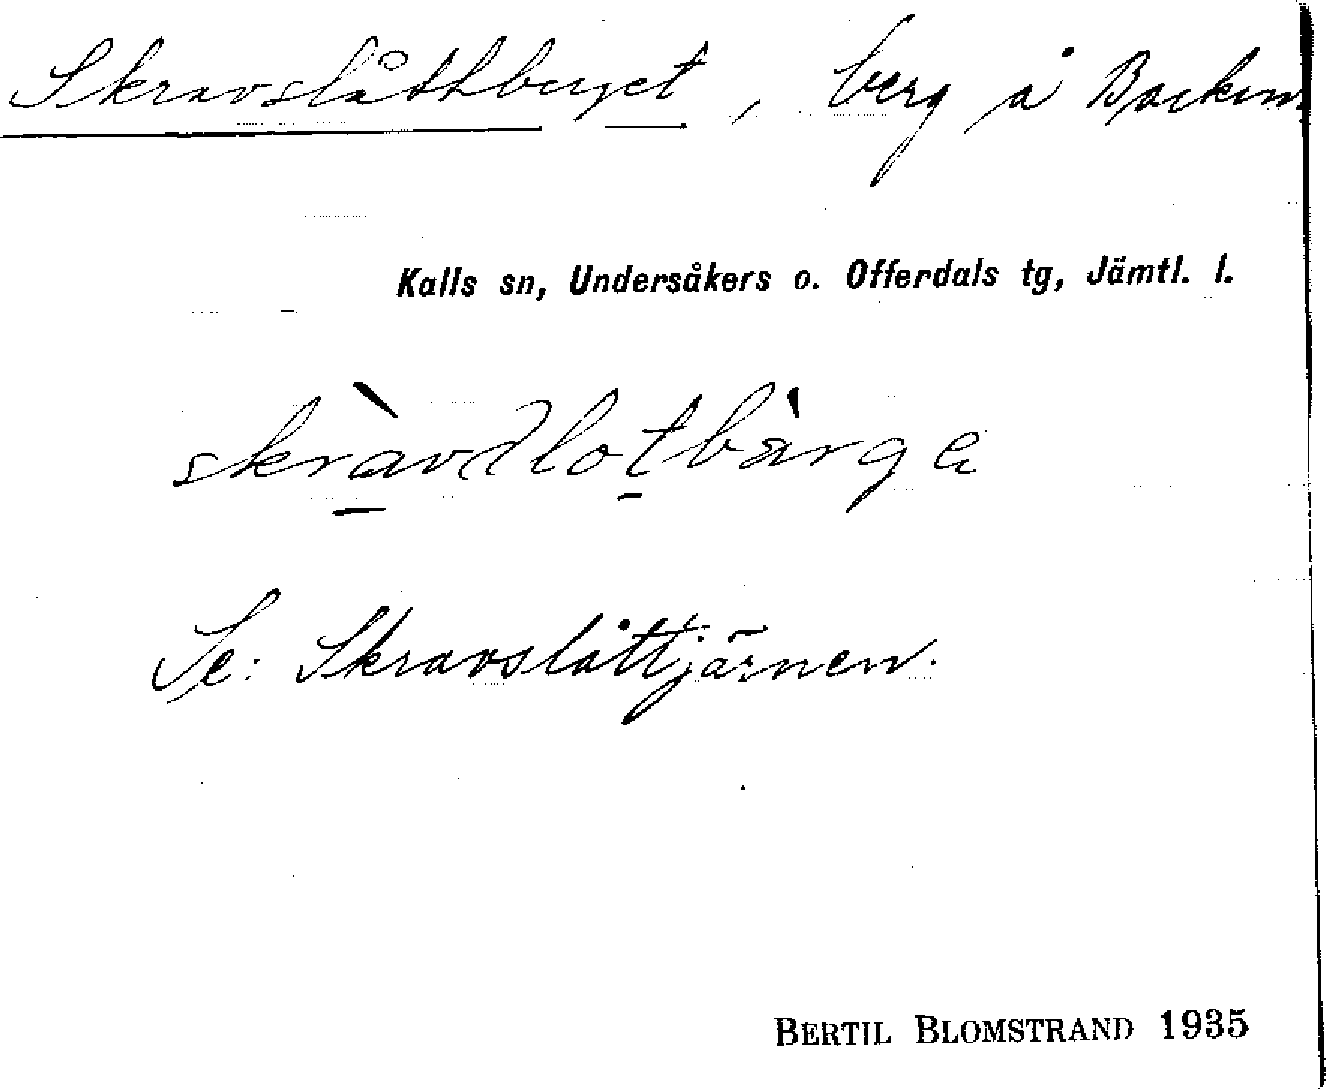 Skravslåttberget, berg å Backen.
Kalls sn, Undersåkers o. Offerdals tg, Jämtl. l.
Se: Skravslåttjärnen.
BERTIL BLOMSTRAND 1935